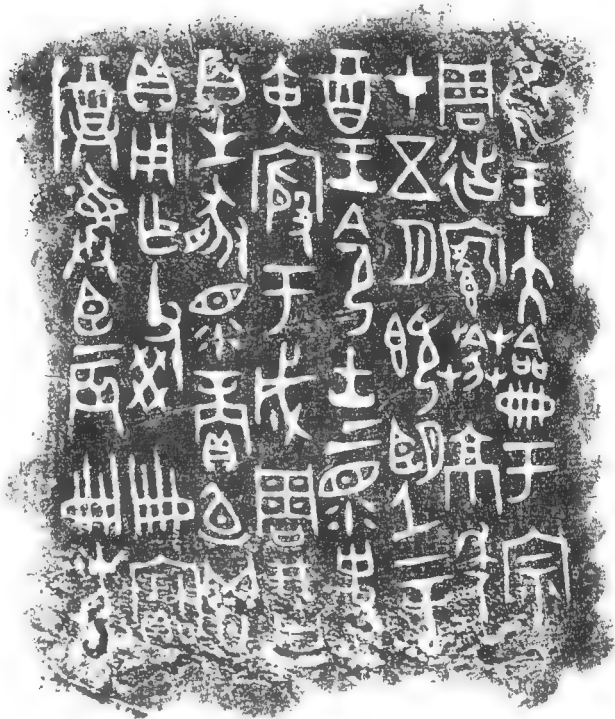 隹王大龠于宗
周徣𩛥𦯧京年
才五月既望辛
酉王令士上眔史
寅殷于成周
百生豚眔賞卣鬯
貝用乍父癸寶
尊彝臣辰冊冊